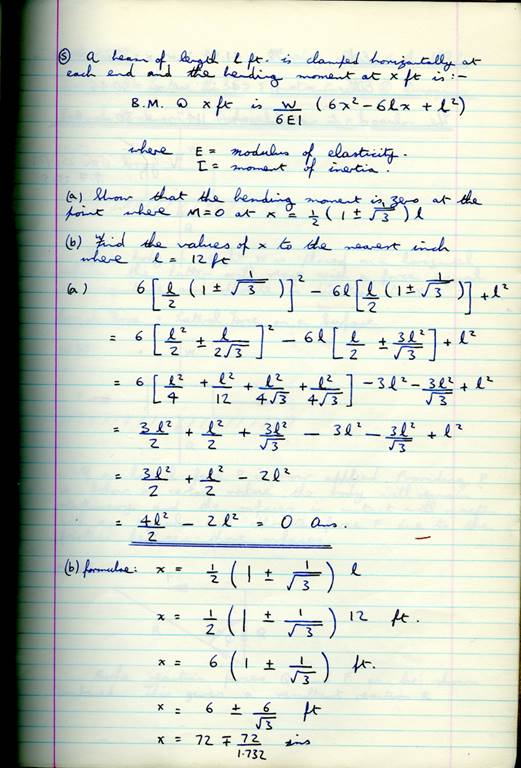 ⑤ A beam of length l ft. is clamped horizontally at
each end and the bending moment at x ft is :-
B.M. @ x ft is W/6EI (6x² - 6lx + l²)
where E = modulus of elasticity.
I = moment of inertia.
(a) Show that the bending moment is zero at the
point where M=0 at x = 1/2 (1 ± 1/√3) l
(b) Find the values of x to the nearest inch
where l = 12 ft
(a) 6[l/2 (1 ± 1/√3)]² - 6l[l/2 (1 ± 1/√3)] + l²
= 6[l²/2 ± l/2√3]² - 6l[l/2 ± 3l²/√3] + l²
= 6[l²/4 + l²/12 + l²/4√3 + l²/4√3] - 3l² - 3l²/√3 + l²
= 3l²/2 + l²/2 + 3l²/√3 - 3l² - 3l²/√3 + l²
= 3l²/2 + l²/2 - 2l²
= 4l²/2 - 2l² = 0 Ans.
(b) formulae: x = 1/2 (1 ± 1/√3) l
x = 1/2 (1 ± 1/√3) 12 ft.
x = 6 (1 ± 1/√3) ft.
x = 6 ± 6/√3 ft
x = 72 ∓ 72/1.732 ins